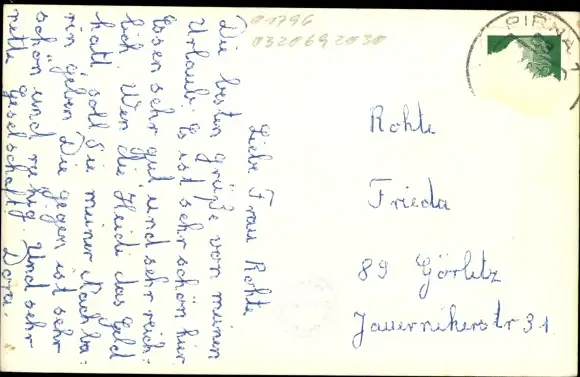 01796
0320692030
PIRNA 1
Liebe Frau Rohte
Die besten Grüße von meinen
Urlaub. Es ist sehr schön hier.
Essen sehr gut und sehr reich-
lich. Wen die Heidi das Geld
hatt, soll Sie meiner Nachba-
rin geben. Die gegen ist sehr
schön und ruhig. Und sehr
nette Geselschaft. Dora.
Rohte
Frieda
89 Görlitz
Jauernikerstr 31